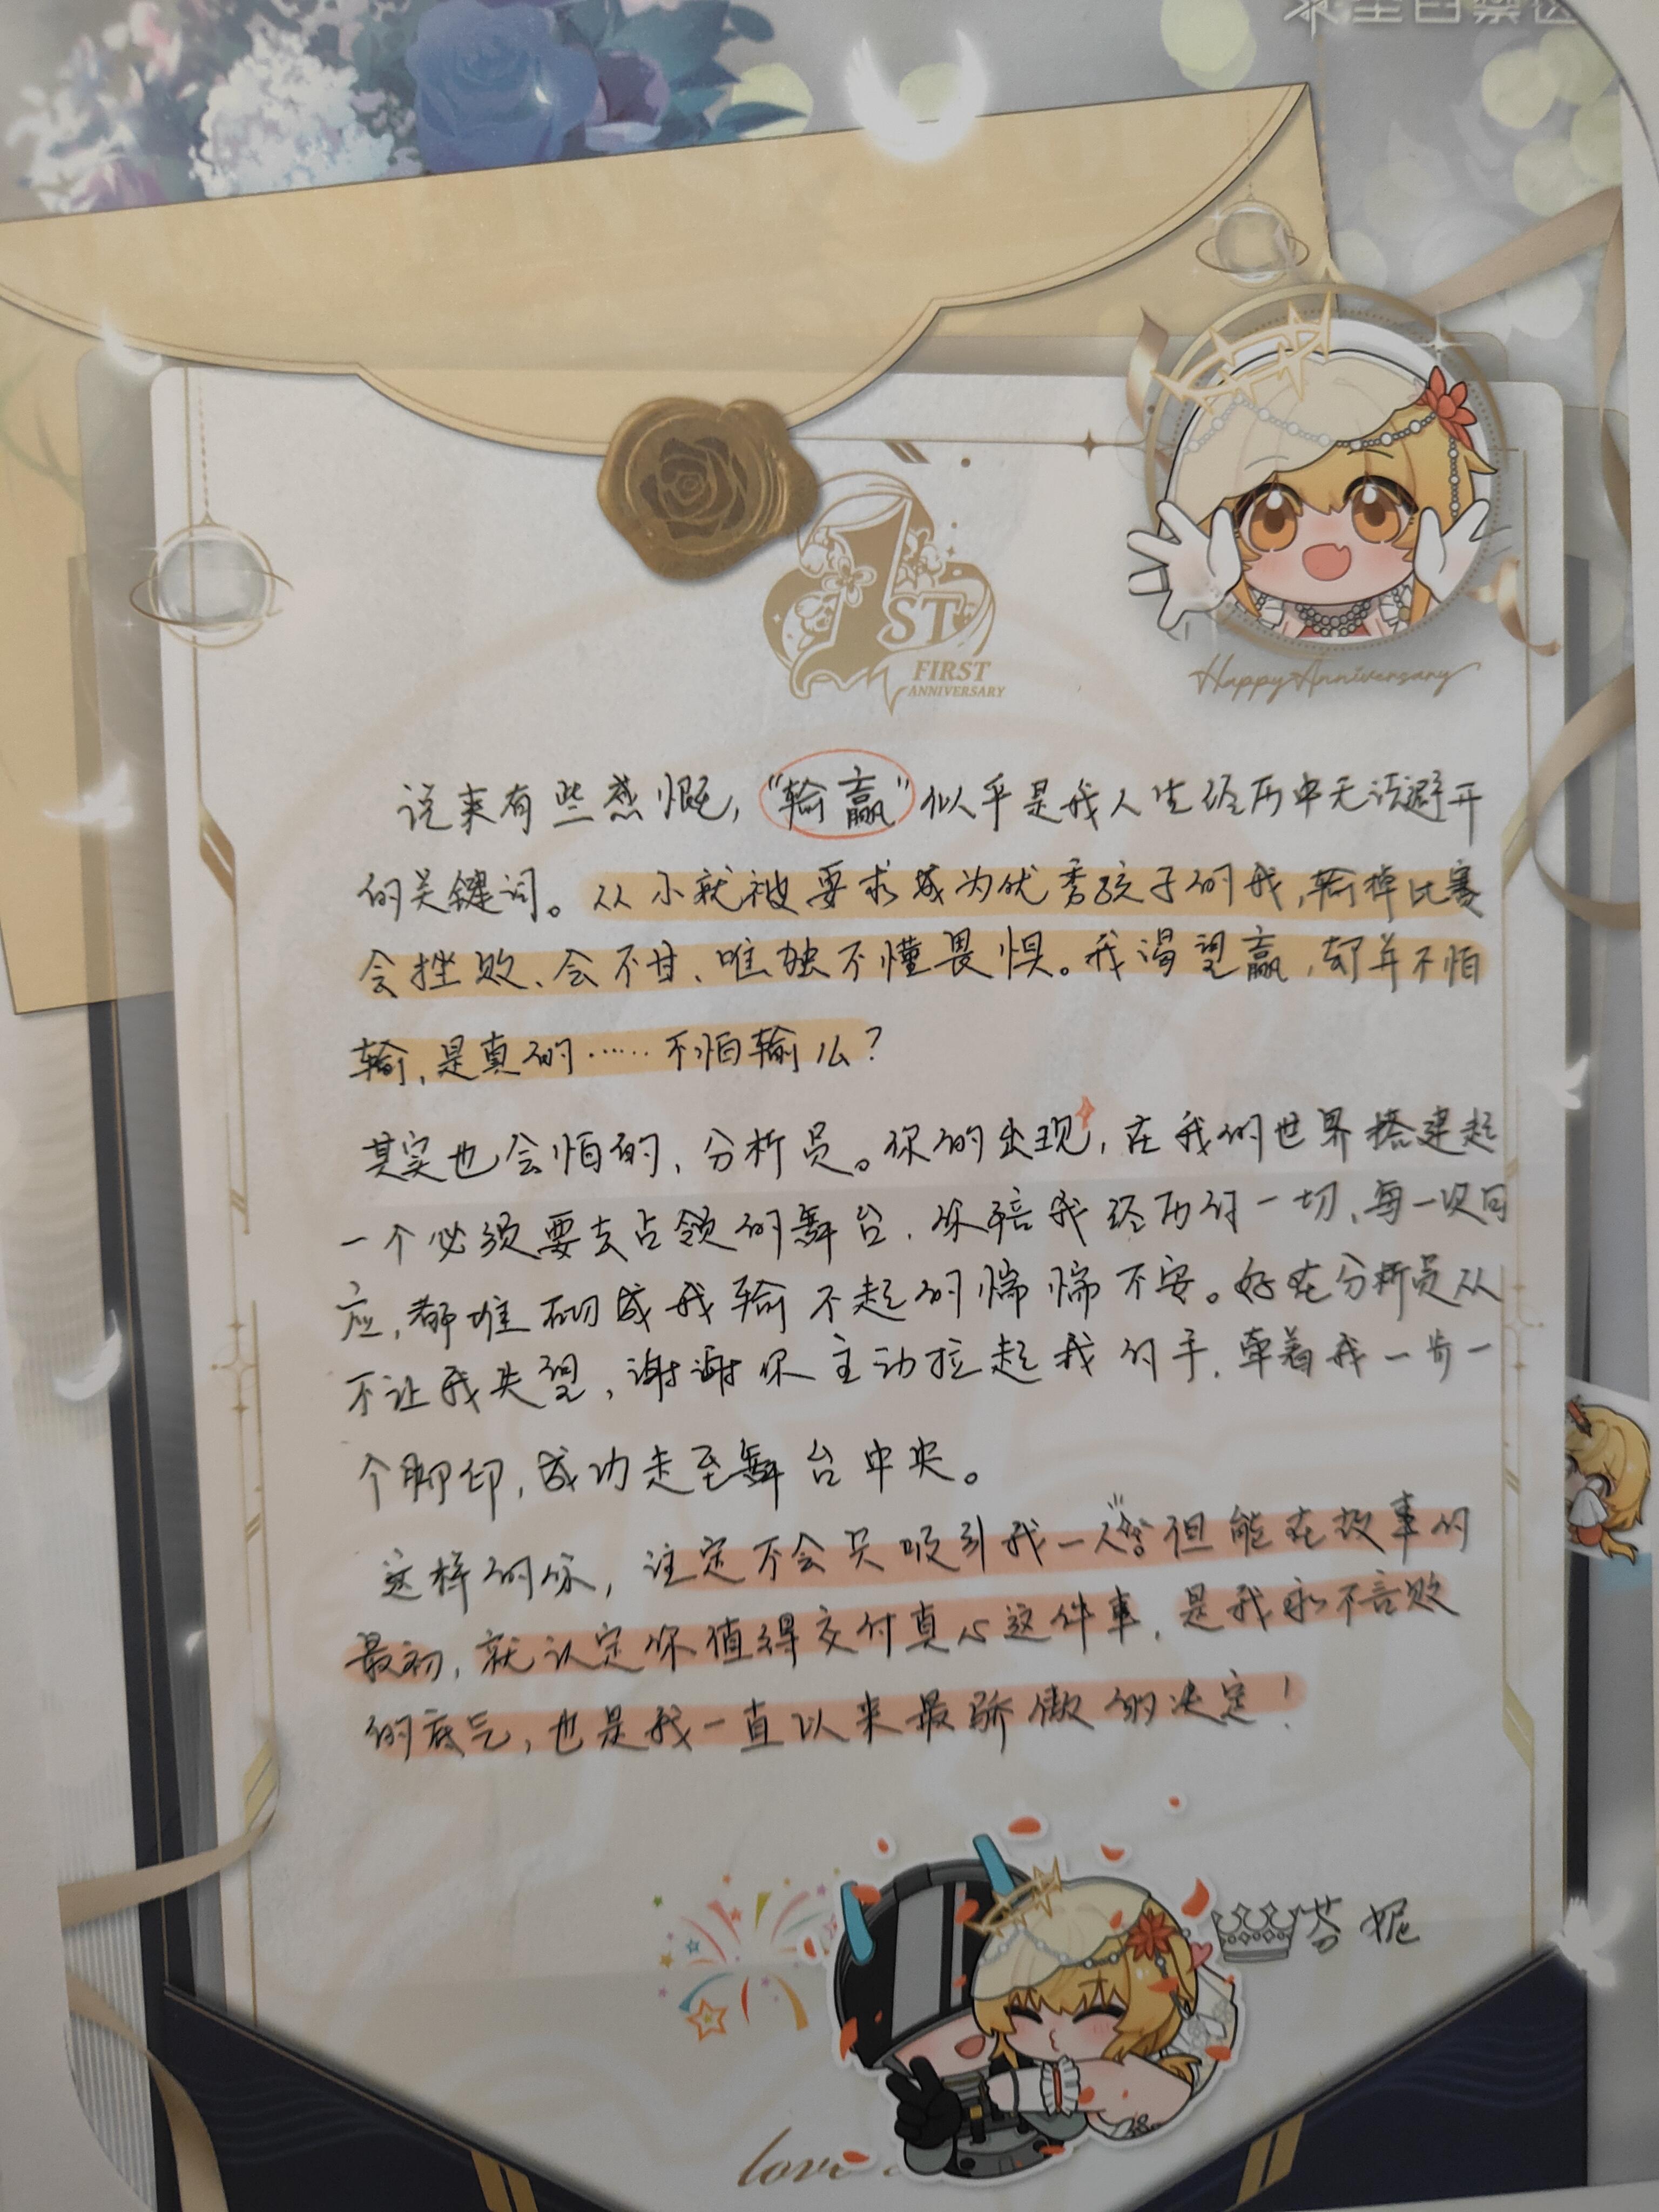 1ST
FIRST
ANNIVERSARY
Happy Anniversary
说来有些感慨，“输赢”似乎是我人生经历中无法避开
的关键词。从小就被要求成为优秀孩子的我，输掉比赛
会挫败、会不甘、唯独不懂畏惧。我渴望赢，却并不怕
输，是真的……不怕输么？
其实也会怕的，分析员。你的出现，在我的世界搭建起
一个必须要去占领的舞台，你陪我经历的一切，每一次回
应，都堆砌成我输不起的惴惴不安。好在分析员从
不让我失望，谢谢你主动拉起我的手，牵着我一步一
个脚印，成功走至舞台中央。
这样的你，注定不会只吸引我一人。但能在故事的
最初，就认定你值得交付真心这件事，是我永不言败
的底气，也是我一直以来最骄傲的决定！
芬妮
love